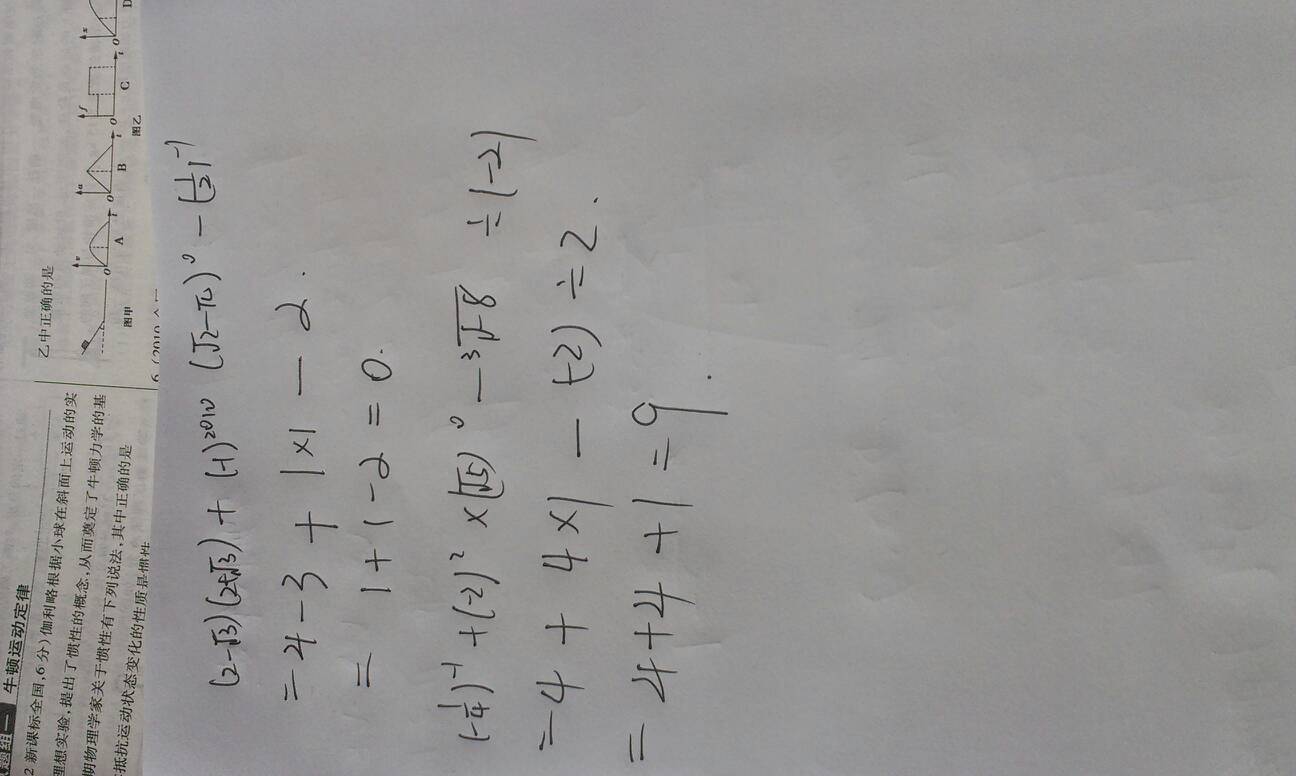 题组一 牛顿运动定律
2 新课标全国,6分)伽利略根据小球在斜面上运动的实
理想实验,提出了惯性的概念,从而奠定了牛顿力学的基
期物理学家关于惯性有下列说法,其中正确的是
抵抗运动状态变化的性质是惯性
乙中正确的是
图甲
A
B
C
D
图乙
(2-√3)(2+√3) + (-1)²⁰¹⁰ (√2-π)⁰ - (1/2)⁻¹
= 4-3 + 1×1 - 2.
= 1+1-2=0.
(-1/4)⁻¹ +(-2)² ×(√5)⁰ - ³√-8 ÷(-2)
=-4 + 4×1 - (-2)÷2.
= 4+4+1=9.